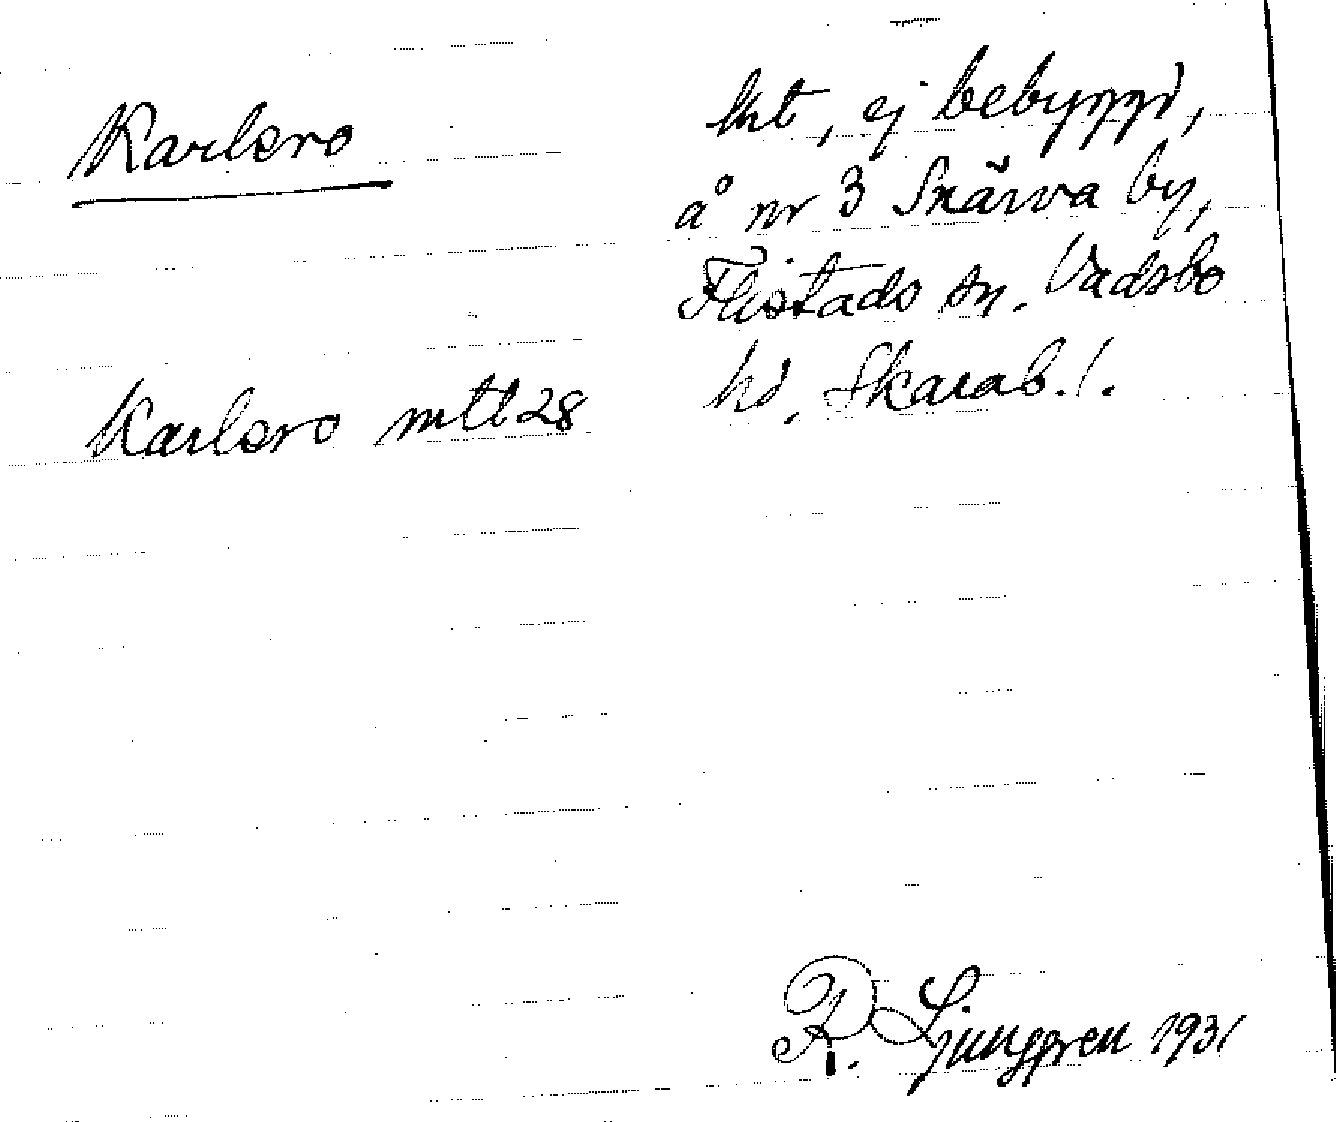 Karlsro
lht, ej bebyggd,
å nr 3 Snärva by,
Flistads sn. Vadsbo
hd. Skarab. l.
Karlsro mtl 28
R. Ljunggren 1931